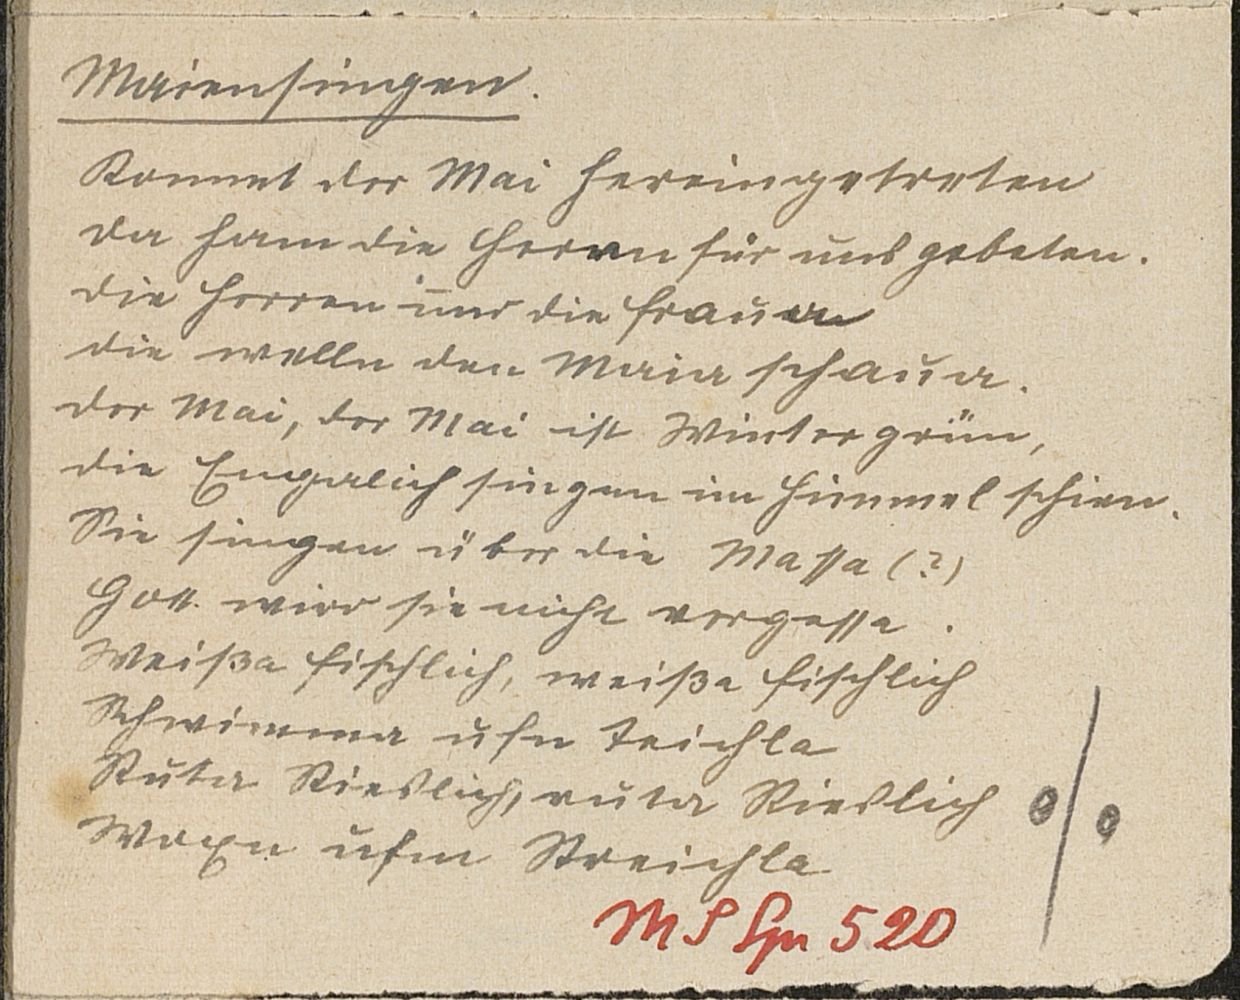 Maiensingen.
Kommt der Mai hereingetreten
da ham die Herrn für uns gebeten.
die Herren und die Fraua
die welln den Maia schaua.
der Mai, der Mai ist Wintergrün,
die Engalich singen im Himmel schien.
Sie singen über die Massa (?)
Gott wird sie nicht vergesse.
Weißa Fischlich, weiße Fischlich
Schwimma ufn Teichla
Ruta Rieslich, ruta Rieslich
Woxn ufm Streichla
M S 520